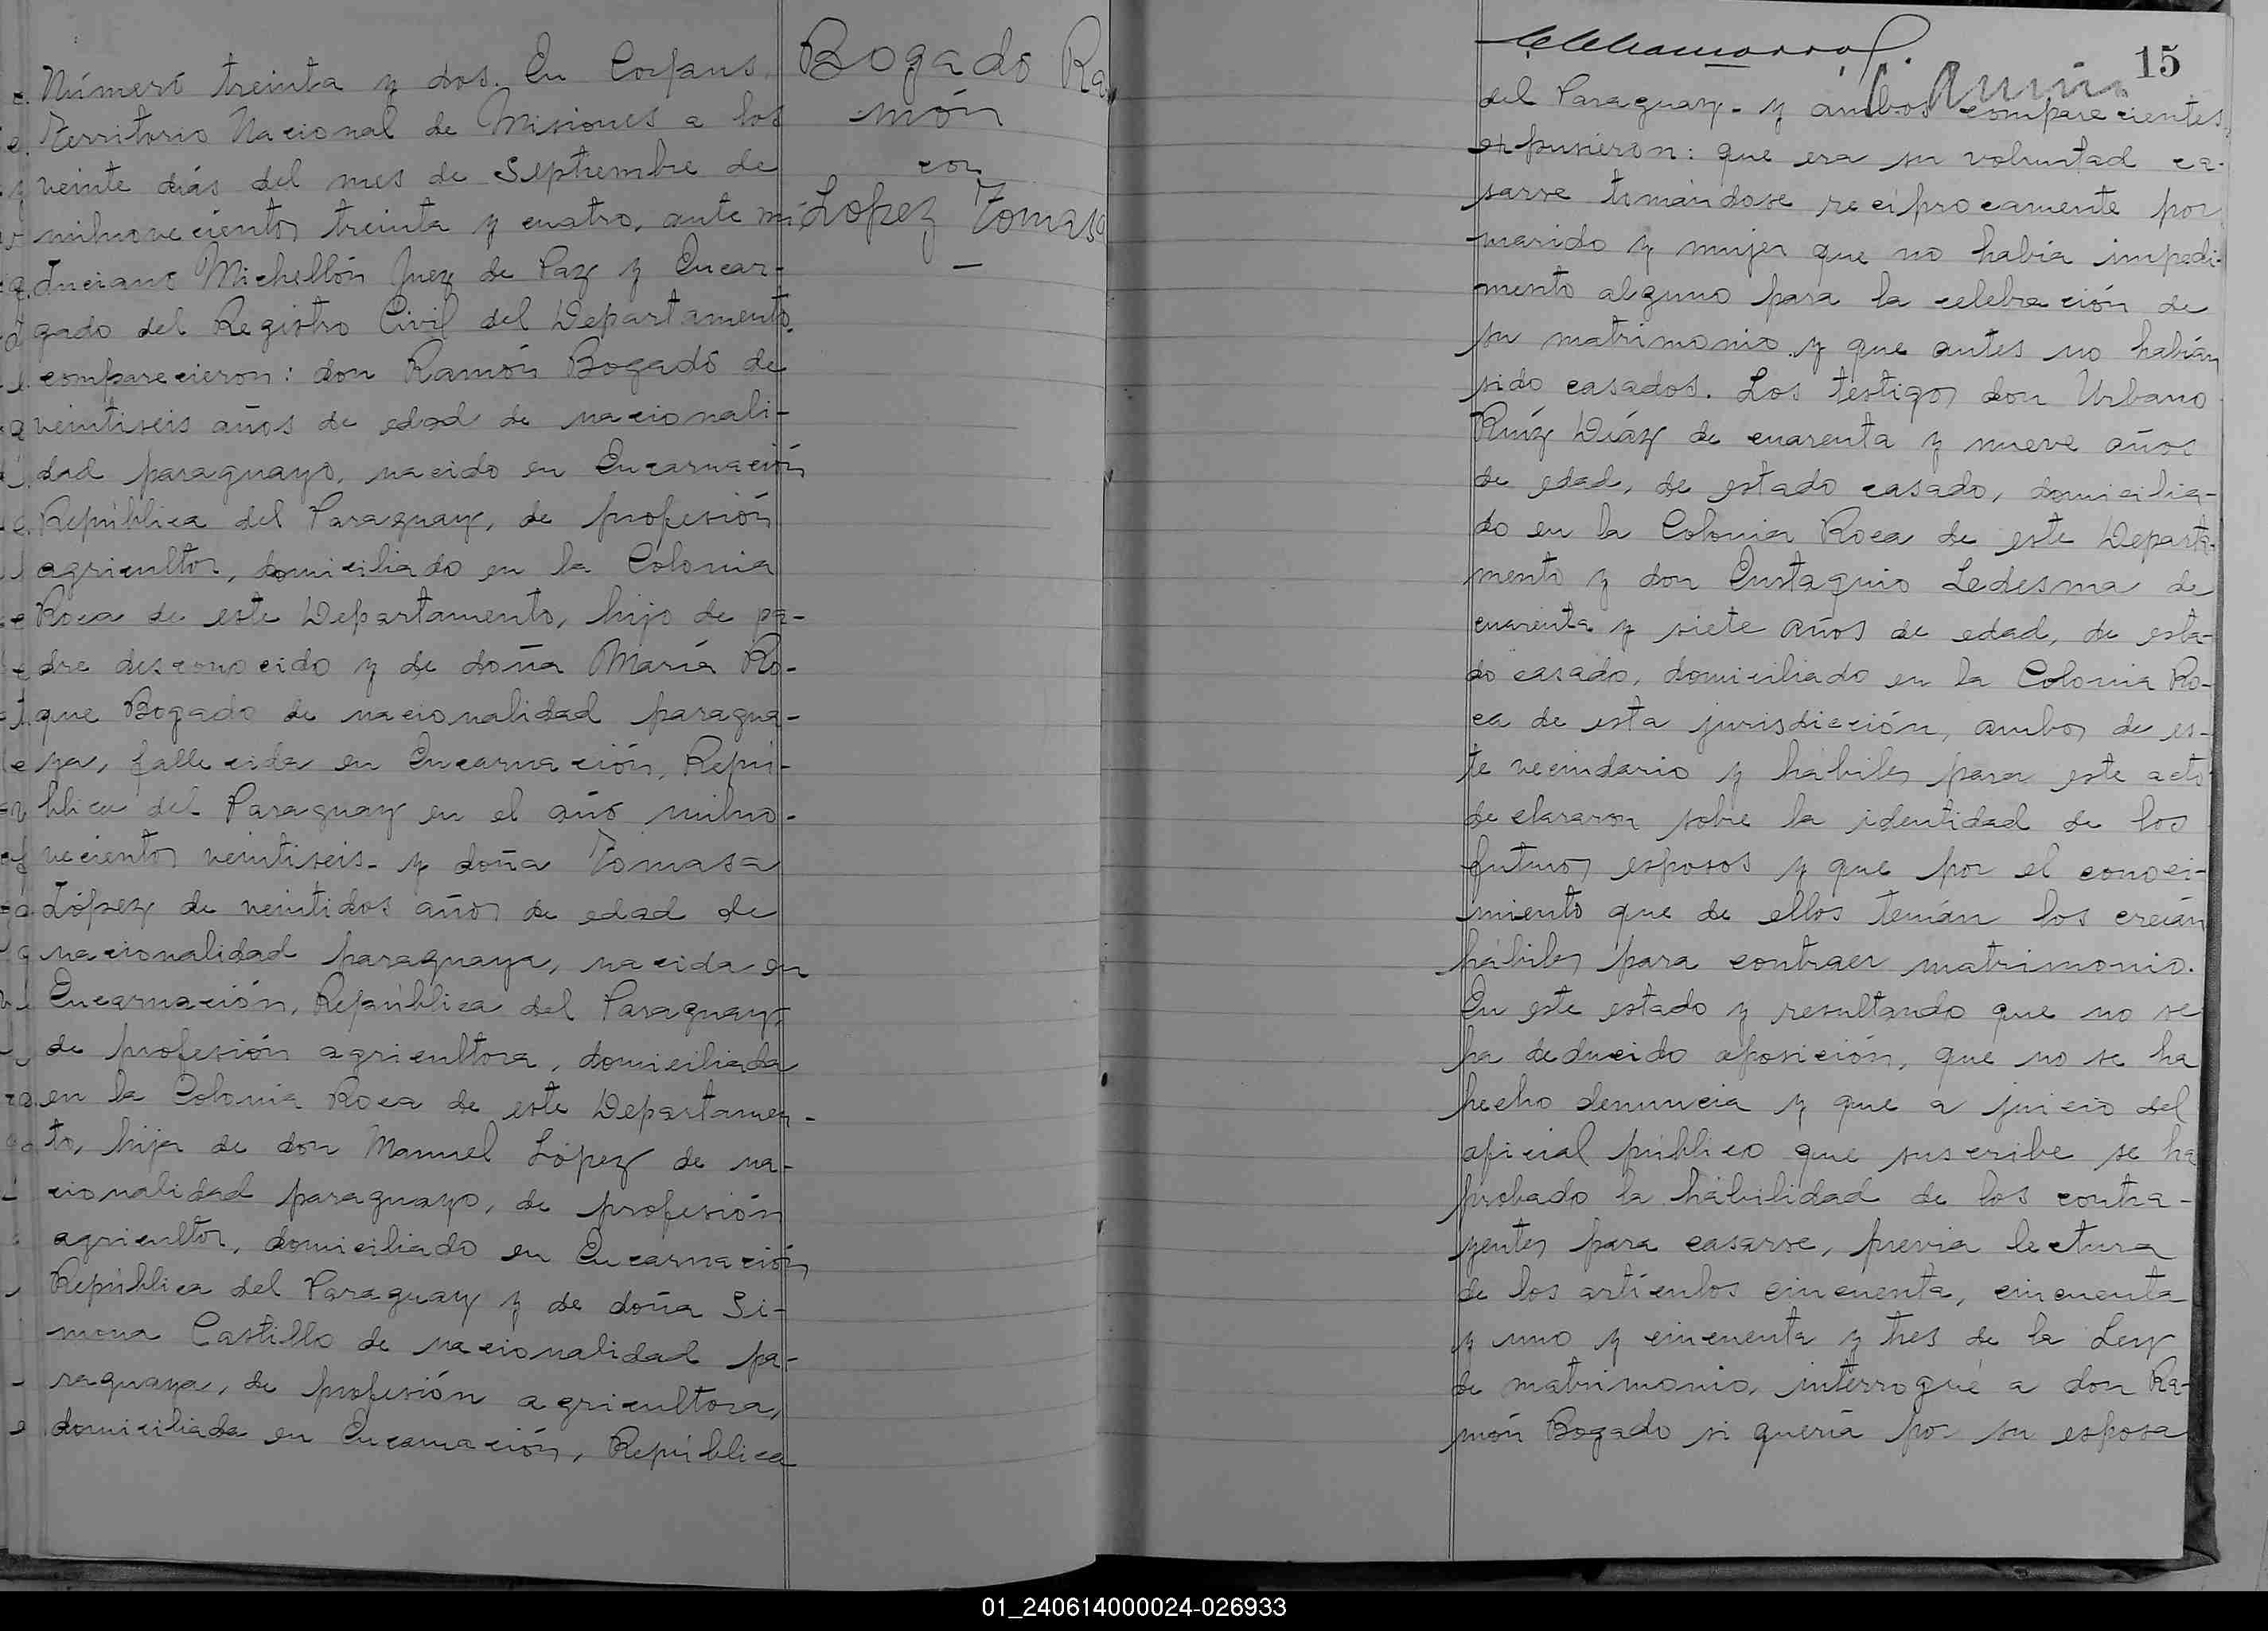 Número treinta y dos. En Corpus,
Territorio Nacional de Misiones a los
veinte días del mes de Septiembre de
milnovecientos treinta y cuatro, ante mi
Luciano Michellón Juez de Paz y Encar-
gado del Registro Civil del Departamento.
comparecieron: don Ramón Bogado de
veintiseis años de edad de nacionali-
dad paraguayo, nacido en Encarnación
República del Paraguay, de profesión
agricultor, domiciliado en la Colonia
Roca de este Departamento, hijo de pa-
dre desconocido y de doña María Ro-
que Bogado de nacionalidad paragua-
ya, fallecida en Encarnación, Repú-
blica del Paraguay en el año milno-
vecientos veintiseis- y doña Tomasa
López de veintidos años de edad de
nacionalidad paraguaya, nacida en
Encarnación, República del Paraguay,
de profesión agricultora, domiciliada
en la Colonia Roca de este Departamen-
to, hija de don Manuel López de na-
cionalidad paraguayo, de profesión
agricultor, domiciliado en Encarnación
República del Paraguay y de doña Si-
mona Castillo de nacionalidad pa-
raguaya, de profesión agricultora,
domiciliada en Encarnación, República
Bogado Ra
món
con
Lopez Tomasa
15
del Paraguay- y ambos comparecientes
expusieron: que era su voluntad ca-
sarse tomándose recíprocamente por
marido y mujer que no había impedi-
mento alguno para la celebración de
su matrimonio y que antes no habían
sido casados. Los testigos don Urbano
Ruíz Díaz de cuarenta y nueve años
de edad, de estado casado, domicilia-
do en la Colonia Roca de este Departa-
mento y don Eustaquio Ledesma de
cuarenta y siete años de edad, de esta-
do casado, domiciliado en la Colonia Ro-
ca de esta jurisdicción, ambos de es-
te vecindario y hábiles para este acto
declararon sobre la identidad de los
futuros esposos y que por el conoci-
miento que de ellos tenían los creían
hábiles para contraer matrimonio.
En este estado y resultando que no se
ha deducido oposición, que no se ha
hecho denuncia y que a juicio del
oficial público que suscribe se ha
probado la habilidad de los contra-
yentes para casarse, previa lectura
de los artículos cincuenta, cincuenta
y uno y cincuenta y tres de la Ley
de matrimonio, interrogué a don Ra-
món Bogado si quería por su esposa
01_240614000024-026933